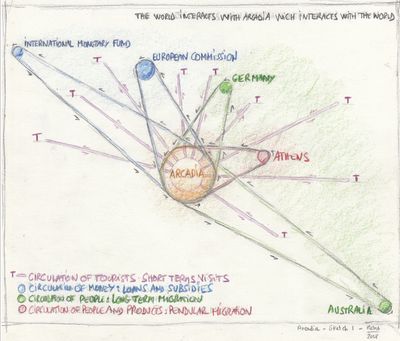 THE WORLD INTERACTS WITH ARCADIA WICH INTERACTS WITH THE WORLD
INTERNATIONAL MONETARY FUND
EUROPEAN COMMISSION
GERMANY
T
T
T
T
T
T
T
ATHENS
ARCADIA
T
T
T CIRCULATION OF TOURISTS : SHORT TERMS VISITS
CIRCULATION OF MONEY : LOANS AND SUBSIDIES
CIRCULATION OF PEOPLE : LONG TERM MIGRATION
CIRCULATION OF PEOPLE AND PRODUCTS : PENDULAR MIGRATION
AUSTRALIA
Arcadia - Sketch 1 -